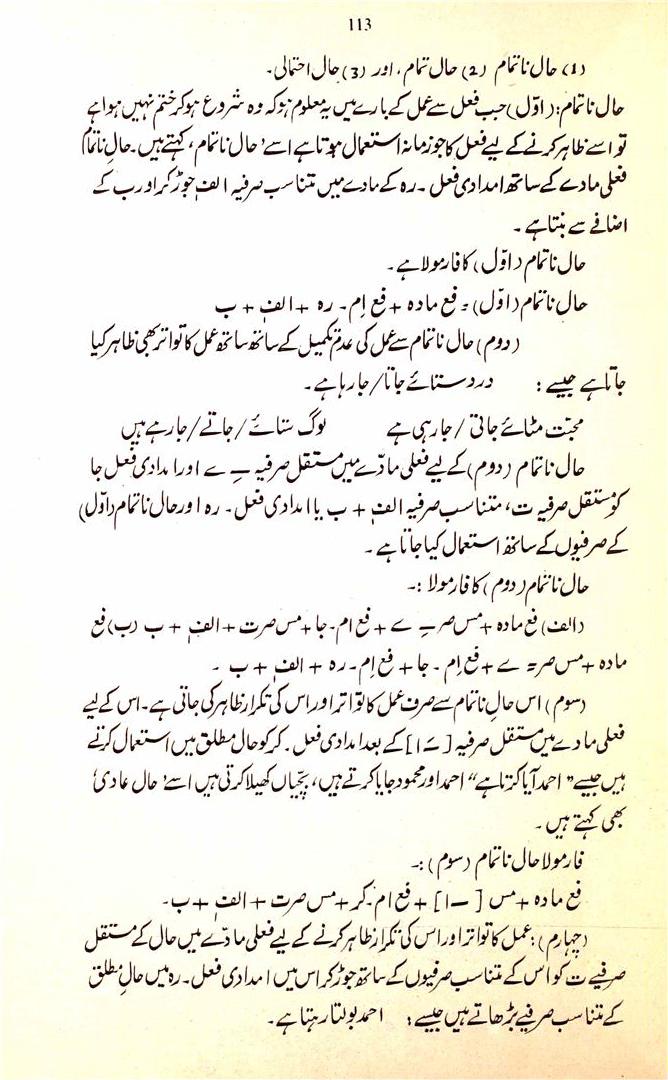 113
(1) حال ناتمام (2) حال تمام، اور (3) حال احتمالی۔
حال ناتمام: (اوّل) جب فعل سے عمل کے بارے میں یہ معلوم ہو کہ وہ شروع ہو کر ختم نہیں ہوا ہے
تو اسے ظاہر کرنے کے لیے فعل کا جو زمانہ استعمال ہوتا ہے اسے ’حال ناتمام‘ کہتے ہیں۔ حالِ ناتمام
فعلی مادے کے ساتھ امدادی فعل۔ رہ کے مادے میں متناسب صرفیہ الف جوڑ کر اور ب کے
اضافے سے بنتا ہے۔
حال ناتمام (اوّل) کا فارمولا ہے۔
حال ناتمام (اوّل) = فع مادہ + فع اِم۔ رہ + الف + ب
(دوم) حال ناتمام سے عمل کی عدم تکمیل کے ساتھ ساتھ عمل کا تواتر بھی ظاہر کیا
جاتا ہے جیسے: درد ستائے جاتا/جا رہا ہے۔
محبّت مٹائے جاتی/جا رہی ہے لوگ ستائے/جاتے/جا رہے ہیں
حال ناتمام (دوم) کے لیے فعلی مادّے میں مستقل صرفیہ ــِـ ے اور امدادی فعل جا
کو مستقل صرفیہ ت، متناسب صرفیہ الف + ب یا امدادی فعل۔ رہ اور حال ناتمام (اوّل)
کے صرفیوں کے ساتھ استعمال کیا جاتا ہے۔
حال ناتمام (دوم) کا فارمولا :۔
(الف) فع مادہ + مس صر ــِـ ے + فع ام۔ جا + مس صرت + الف + ب (ب) فع
مادہ + مس صر = ے + فع اِم۔ جا + فع اِم۔ رہ + الف + ب۔
(سوم) اس حالِ ناتمام سے صرف عمل کا تواتر اور اس کی تکرار ظاہر کی جاتی ہے۔ اس کے لیے
فعلی مادے میں مستقل صرفیہ [ــَـ ا] کے بعد امدادی فعل۔ کر کو حال مطلق میں استعمال کرتے
ہیں جیسے ”احمد آیا کرتا ہے“ احمد اور محمود جایا کرتے ہیں، بچّیاں کھیلا کرتی ہیں اسے ’حال عادی‘
بھی کہتے ہیں۔
فارمولا حال ناتمام (سوم) :۔
فع مادہ + مس [ــَـ ا] + فع ام۔ کر + مس صرت + الف + ب۔
(چہارم) : عمل کا تواتر اور اس کی تکرار ظاہر کرنے کے لیے فعلی مادّے میں حال کے مستقل
صرفیے ت کو اس کے متناسب صرفیوں کے ساتھ جوڑ کر اس میں امدادی فعل۔ رہ میں حالِ مطلق
کے متناسب صرفیے بڑھاتے ہیں جیسے: احمد بولتا رہتا ہے۔